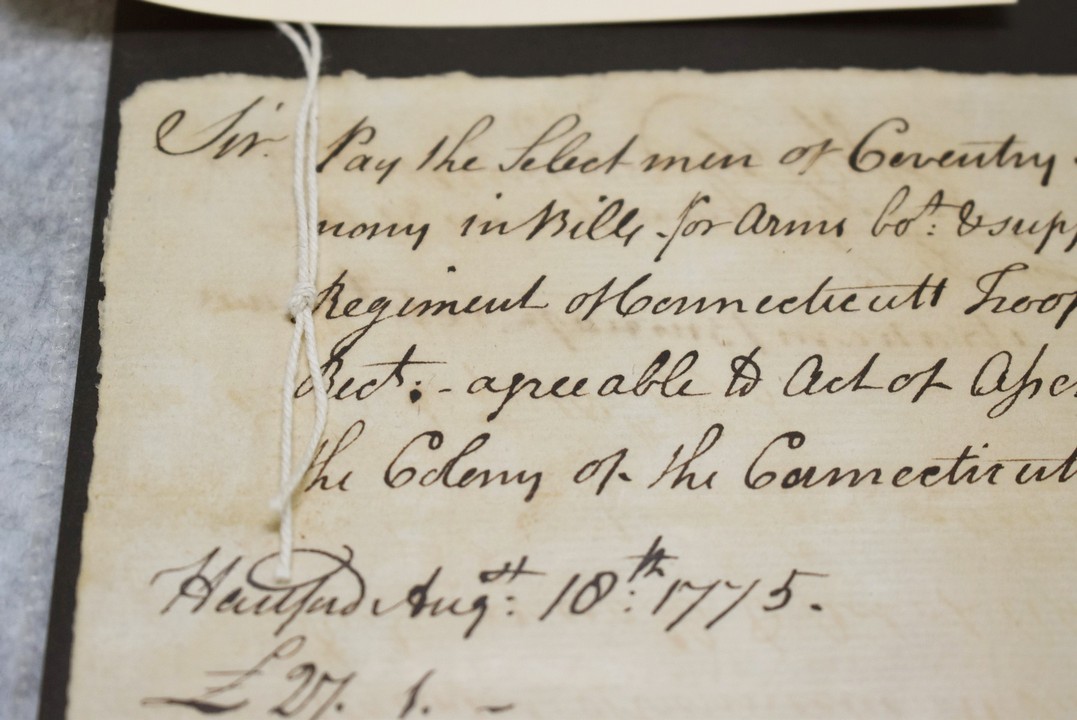 Sir. Pay the Select men of Coventry
mony in Bills for Arms bot: & supp
Regiment of Connecticutt Troop
Rect: - agreeable to Act of Assem
the Colony of the Connecticut
Hartford Augst: 18th: 1775.
£27. 1. -